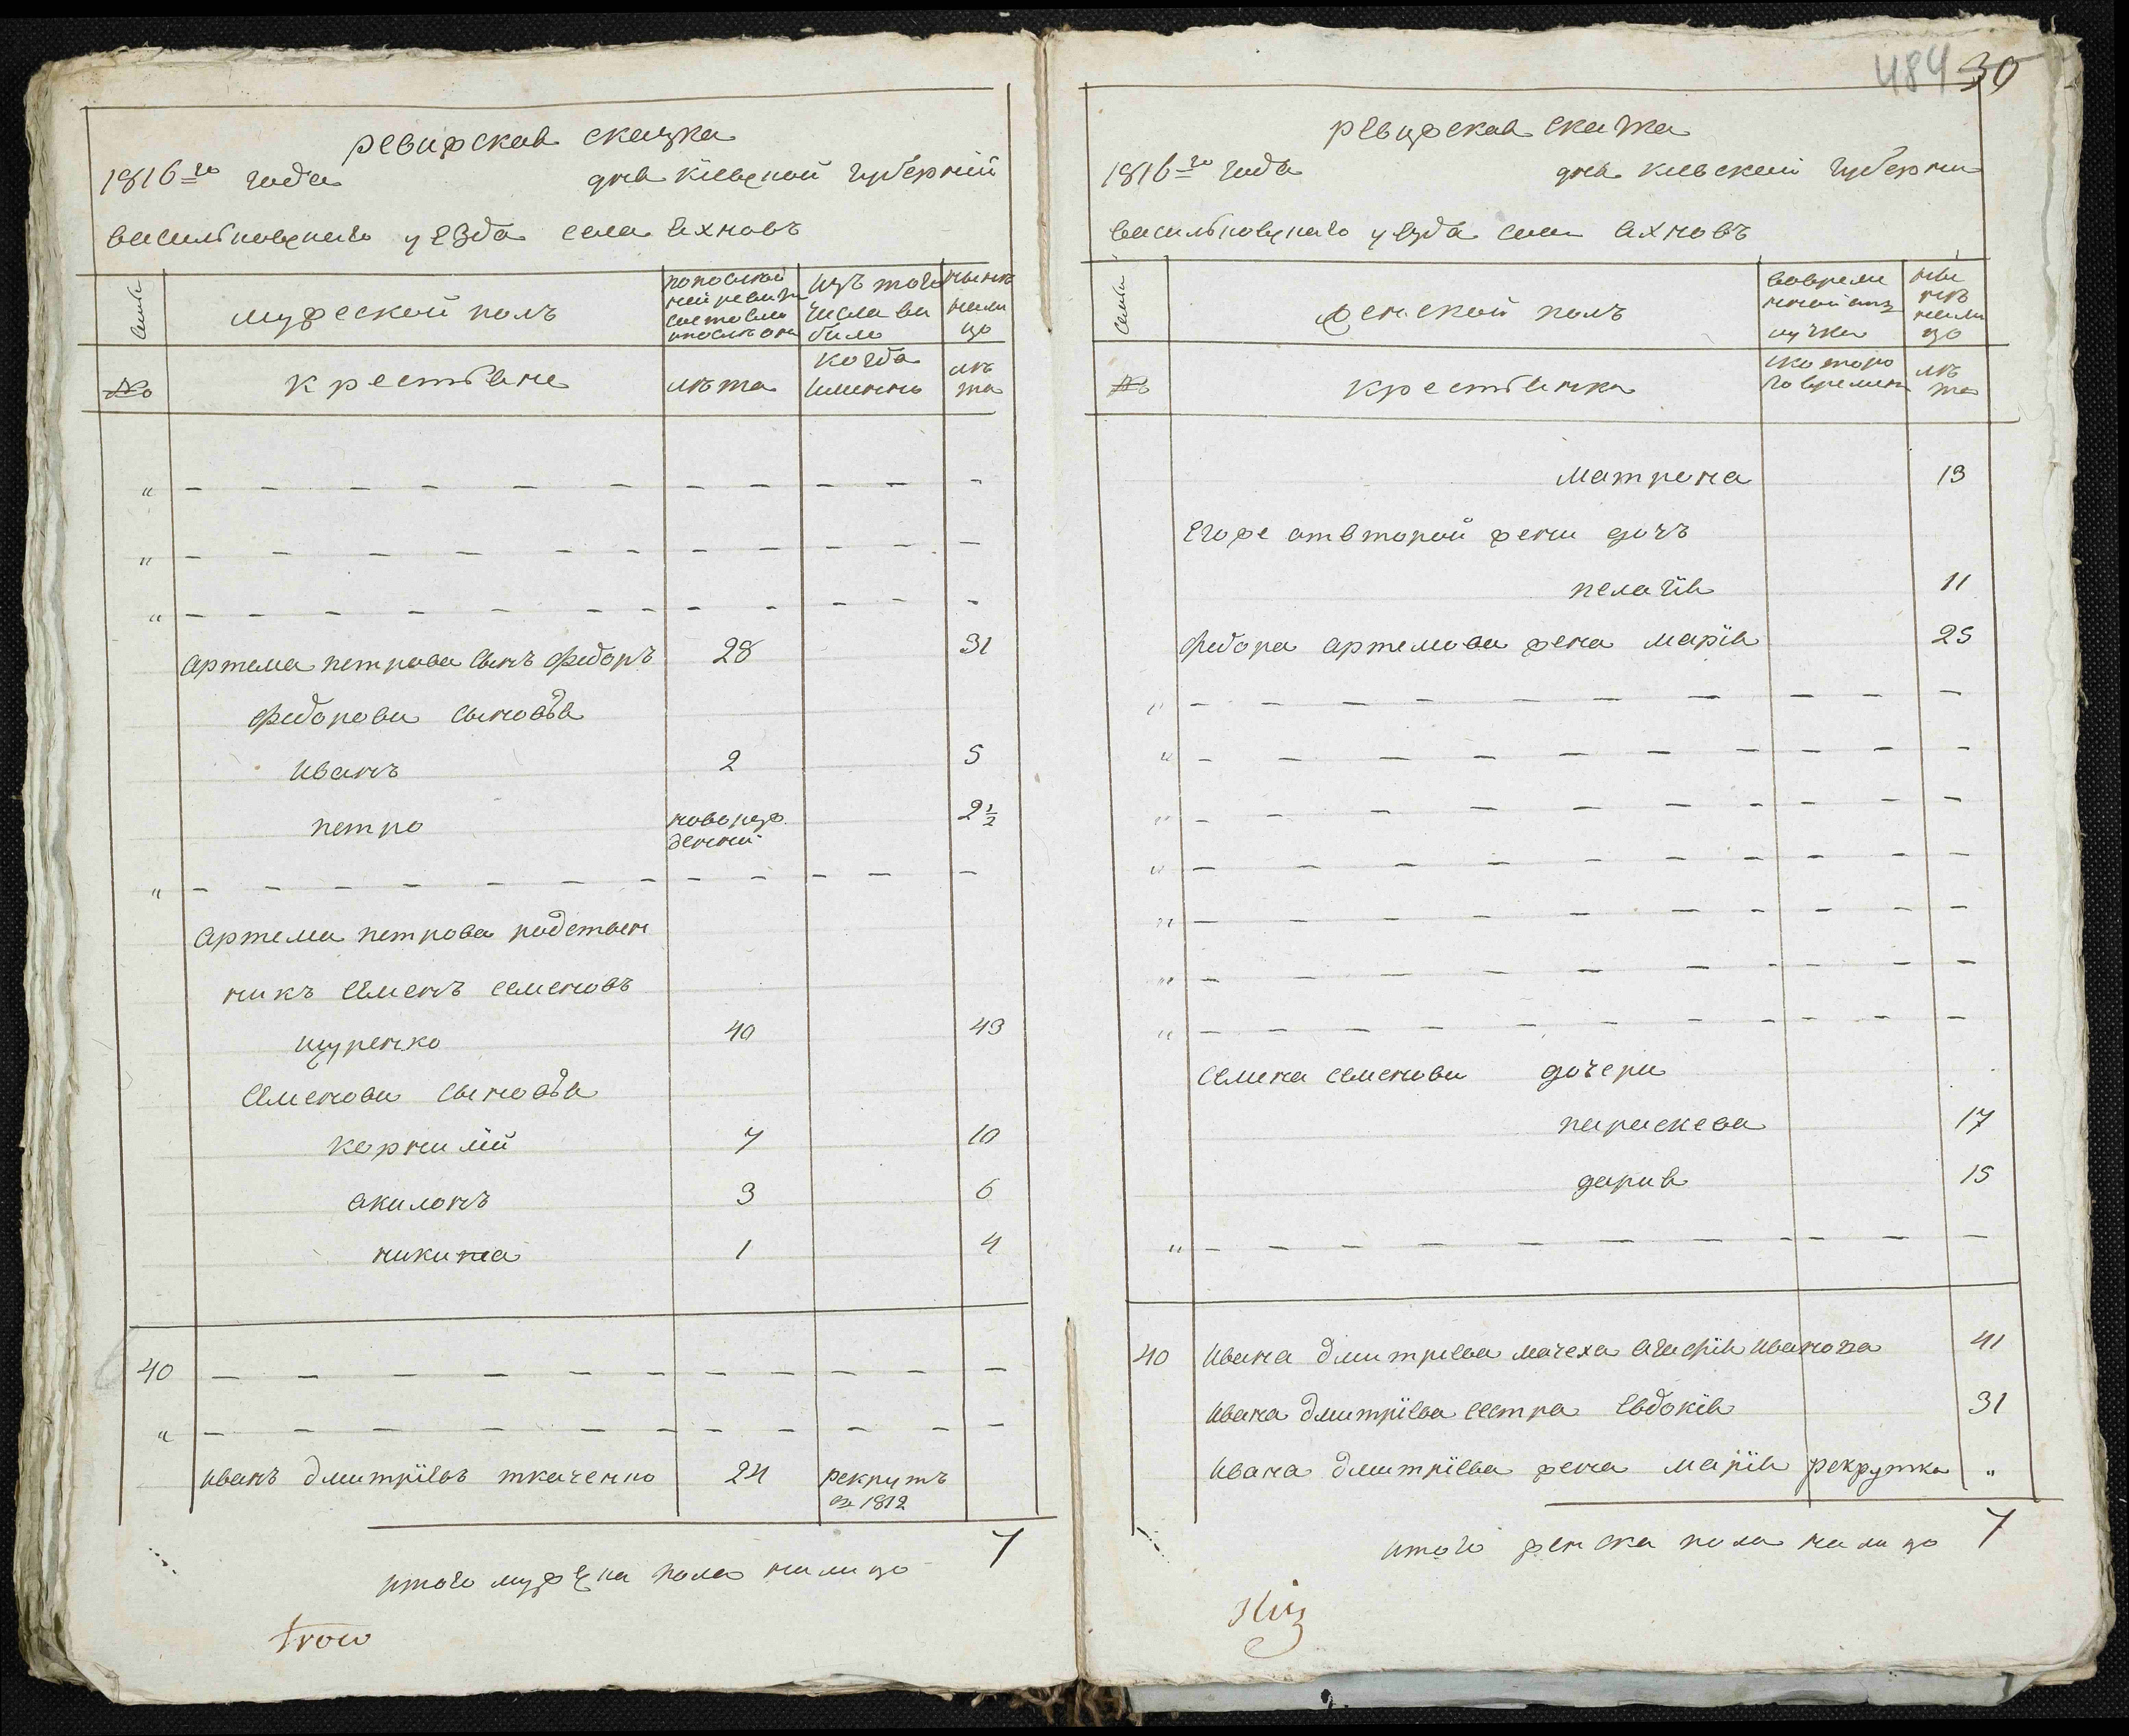 ревизская сказка
1816=го года дня кіевской губерніи
васильковскаго уезда села яхновъ
Семьи
мужеской полъ
по последней ревизіи состояло и после она
Изъ того числа выбыло
ныне налицо
№
крестьяне
лѣта
когда именно
лѣта
" — — — — — — — — — — -
" — — — — — — — — — — —
" — — — — — — — — — — -
артема петрова сынъ федоръ 28 31
федорова сыновья
иванъ 2 5
петро новорожденній 2½
" — — — — — — — — — — —
артема петрова родственникъ семенъ семеновъ
щуренко 40 43
семенова сыновья
корнилій 7 10
акилонъ 3 6
никита 1 4
40 — — — — — — — — — — —
" — — — — — — — — — — —
иванъ дмитріевъ ткаченко 24 рекрутъ въ 1812
итого мужска пола налицо 7
484 30
ревизская сказка
1816=го года дня кіевской губерніи
васильковскаго уезда села яхновъ
Семьи
женской полъ
вовременной отлучки
ныне налицо
№
крестьянка
скоторого времени
лѣта
матрона 13
егоже отвторой жени дочъ
пелагія 11
федора артемова жена марія 25
" — — — — — — — — — —
" — — — — — — — — — —
" — — — — — — — — — —
" — — — — — — — — — —
" — — — — — — — — — —
" — — — — — — — — — —
" — — — — — — — — — —
семена семенова дочери
параскева 17
дария 15
" — — — — — — — — — —
40 ивана дмитріева мачеха агафія иванова 41
ивана дмитріева сестра евдокія 31
ивана дмитріева жена марія рекрутка "
итого женска пола налицо 7